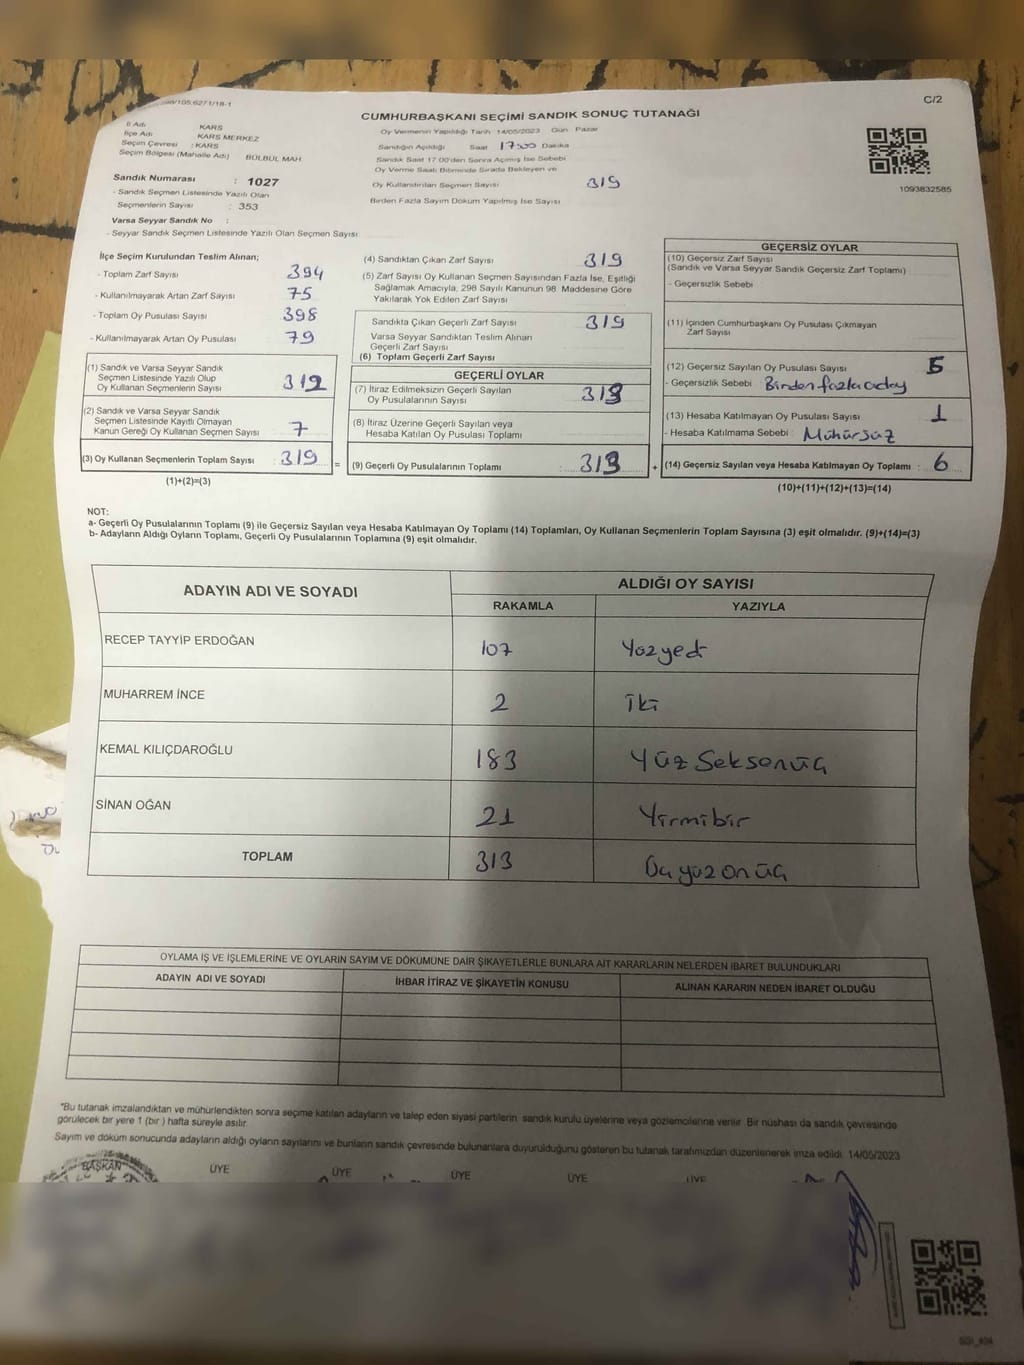 C/2
CUMHURBAŞKANI SEÇİMİ SANDIK SONUÇ TUTANAĞI
İl Adı KARS
İlçe Adı KARS MERKEZ
Seçim Çevresi : KARS
Seçim Bölgesi (Mahalle Adı) BÜLBÜL MAH.
Sandık Numarası : 1027
- Sandık Seçmen Listesinde Yazılı Olan
Seçmenlerin Sayısı : 353
Varsa Seyyar Sandık No :
- Seyyar Sandık Seçmen Listesinde Yazılı Olan Seçmen Sayısı
Oy Vermenin Yapıldığı Tarih 14/05/2023 Gün Pazar
Sandığın Açıldığı Saat 17:00 Dakika
Sandık Saat 17.00'den Sonra Açılmış İse Sebebi
Oy Verme Saati Bitiminde Sırada Bekleyen ve
Oy Kullandırılan Seçmen Sayısı 319
Birden Fazla Sayım Döküm Yapılmış İse Sayısı
1093832585
İlçe Seçim Kurulundan Teslim Alınan;
- Toplam Zarf Sayısı 394
- Kullanılmayarak Artan Zarf Sayısı 75
- Toplam Oy Pusulası Sayısı 398
- Kullanılmayarak Artan Oy Pusulası 79
(1) Sandık ve Varsa Seyyar Sandık
Seçmen Listesinde Yazılı Olup
Oy Kullanan Seçmenlerin Sayısı : 312
(2) Sandık ve Varsa Seyyar Sandık
Seçmen Listesinde Kayıtlı Olmayan
Kanun Gereği Oy Kullanan Seçmen Sayısı 7
(3) Oy Kullanan Seçmenlerin Toplam Sayısı : 319 =
(1)+(2)=(3)
(4) Sandıktan Çıkan Zarf Sayısı 319
(5) Zarf Sayısı Oy Kullanan Seçmen Sayısından Fazla İse, Eşitliği
Sağlamak Amacıyla, 298 Sayılı Kanunun 98. Maddesine Göre
Yakılarak Yok Edilen Zarf Sayısı
Sandıkta Çıkan Geçerli Zarf Sayısı 319
Varsa Seyyar Sandıktan Teslim Alınan
Geçerli Zarf Sayısı
(6) Toplam Geçerli Zarf Sayısı
GEÇERLİ OYLAR
(7) İtiraz Edilmeksizin Geçerli Sayılan
Oy Pusulalarının Sayısı : 313
(8) İtiraz Üzerine Geçerli Sayılan veya
Hesaba Katılan Oy Pusulası Toplamı
(9) Geçerli Oy Pusulalarının Toplamı : 313 +
GEÇERSİZ OYLAR
(10) Geçersiz Zarf Sayısı
(Sandık ve Varsa Seyyar Sandık Geçersiz Zarf Toplamı)
- Geçersizlik Sebebi
(11) İçinden Cumhurbaşkanı Oy Pusulası Çıkmayan
Zarf Sayısı
(12) Geçersiz Sayılan Oy Pusulası Sayısı 5
- Geçersizlik Sebebi Birden fazla aday
(13) Hesaba Katılmayan Oy Pusulası Sayısı 1
- Hesaba Katılmama Sebebi : Mühürsüz
(14) Geçersiz Sayılan veya Hesaba Katılmayan Oy Toplamı : 6
(10)+(11)+(12)+(13)=(14)
NOT:
a- Geçerli Oy Pusulalarının Toplamı (9) ile Geçersiz Sayılan veya Hesaba Katılmayan Oy Toplamı (14) Toplamları, Oy Kullanan Seçmenlerin Toplam Sayısına (3) eşit olmalıdır. (9)+(14)=(3)
b- Adayların Aldığı Oyların Toplamı, Geçerli Oy Pusulalarının Toplamına (9) eşit olmalıdır.
ADAYIN ADI VE SOYADI ALDIĞI OY SAYISI
RAKAMLA YAZIYLA
RECEP TAYYİP ERDOĞAN 107 Yüzyedi
MUHARREM İNCE 2 İki
KEMAL KILIÇDAROĞLU 183 Yüz Seksenüç
SİNAN OĞAN 21 Yirmibir
TOPLAM 313 Üçyüzonüç
OYLAMA İŞ VE İŞLEMLERİNE VE OYLARIN SAYIM VE DÖKÜMÜNE DAİR ŞİKAYETLERLE BUNLARA AİT KARARLARIN NELERDEN İBARET BULUNDUKLARI
ADAYIN ADI VE SOYADI İHBAR İTİRAZ VE ŞİKAYETİN KONUSU ALINAN KARARIN NEDEN İBARET OLDUĞU
*Bu tutanak imzalandıktan ve mühürlendikten sonra seçime katılan adayların ve talep eden siyasi partilerin sandık kurulu üyelerine veya gözlemcilerine verilir. Bir nüshası da sandık çevresinde
görülecek bir yere 1 (bir ) hafta süreyle asılır.
Sayım ve döküm sonucunda adayların aldığı oyların sayılarını ve bunların sandık çevresinde bulunanlara duyurulduğunu gösteren bu tutanak tarafımızdan düzenlenerek imza edildi. 14/05/2023
BAŞKAN ÜYE ÜYE ÜYE ÜYE ÜYE